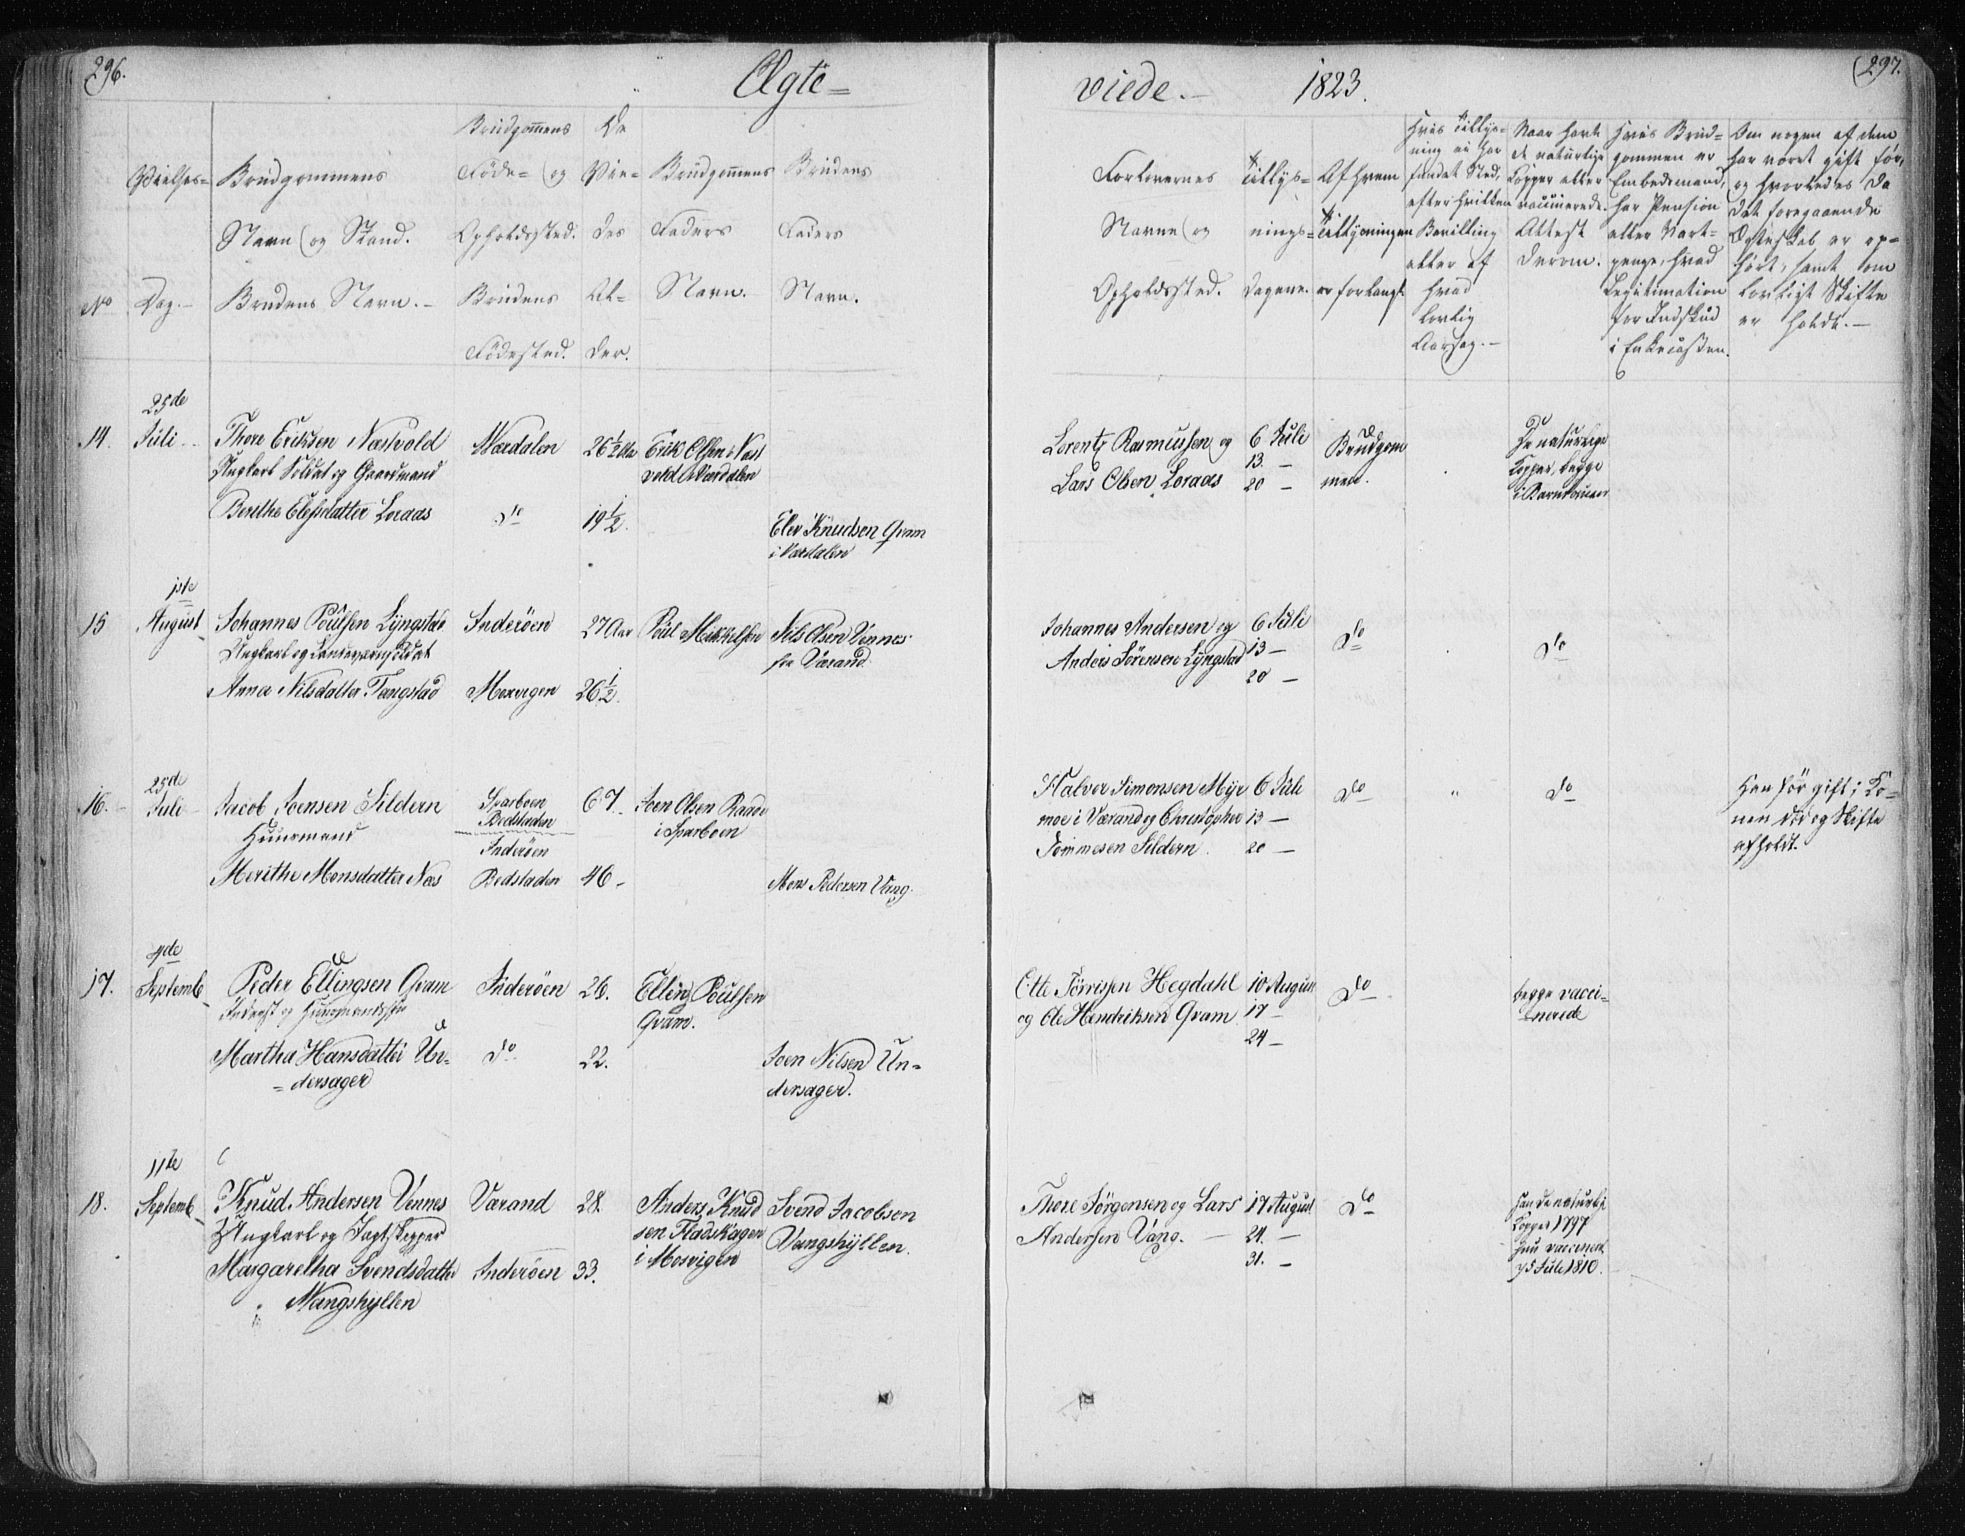 296.
Ægte=
viede.—
1823.
(297.
No
Vielses=
Dag.—
Brudgommens
Navn og Stand.
Brudens Navn.—
Brudgom̄ens
Föde= og
Opholdssted.
Brudens
Födested.
De
Vie=
des
Al=
der.
Brudgom̄ens
Faders
Navn.—
Brudens
Faders
Navn.
Forlovernes
Navne og
Opholdssted.
Tillys=
nings=
Dagene.
Af hvem
Tillysningen
er forlangt.
Hvis Tillys=
ning ei har
fundet Sted,
efter hvilken
Bevilling
eller af
hvad
lovlig
Aarsag.—
Naar havt
de naturlige
Kopper eller
vaccinerede.
Attest
derom.
Hvis Brud=
gommen er
Embedsmand,
har Pension
eller Vart=
penge, hvad
Legitimation
for Indskud
i Enkecassen.
Om nogen af dem
har været gift før,
og hvorledes da
det foregaaende
Ægteskab er op=
hört, samt om
lovligt Skifte
er holdt.—
14.
25de
Juli
Thore Eriksen Næstvold
Ungkarl Soldat og Gaardmand
Berithe Elefsdatter Loraas
Værdalen
do
26½ Aar
19½.
Erik Olsen Næst
vold i Værdalen
Elev Knudsen Gram
i Værdalen
Lorentz Rasmussen og
Lars Olsen Loraas
6 Juli
13. —
20 —
Brudgom
men.
De naturlige
Kopper, begge
i Barndommen
15
1ste
August
Johannes Poulsen Lyngstad
Ungkarl og Landeværnssoldat
Anna Nilsdatter Tangstad
Inderöen
Mosvigen
27 Aar
26½.
Poul Mikkelsen
Nils Olsen Vennes
fra Værand
Johannes Andersen og
Anders Sörensen Lyngstad
6 Juli
13 —
20 —
do
do
16.
25de
Juli
Jacob Joensen Sildern
Huusmand
Merithe Monsdatter Næs
Sparboen
Bedstaden
Inderöen
Bedstaden
67.
46 —
Joen Olsen
i Sparboen
Mons Pedersen Vang.
Halvor Simonsen Myr
moe i Værand og Christopher
Tommesen Sildern.
6 Juli
13 —
20 —
do
"
do
Han för gift; Ko=
nen död og Skifte
afholdt.
17.
4de
Septemb
Peder Ellingsen Gram
Inderst og Huusmandssön
Martha Hansdatter Un=
=dersager
Inderöen
do
26.
22.
Elling Poulsen
Gram.
Joen Nilsen Un=
dersager.
Otte Törrissen Hegdahl
og Ole Hendriksen Gram
10 August
17 —
24 —
do
begge vacci=
nerede
18.
11te
Septemb
Knud Andersen Vennes
Ungkarl og Jagtskipper
Margaretha Svendsdatter
Vangshyllen
Værand
Inderöen
28.
33.
Anders Knud
sen Fladskagen
i Mosvigen
Svend Jacobsen
Vangshyllen.
Thore Jörgensen og Lars
Andersen Vang. —
17 August
24. —
31. —
do
han de naturlige
Kopper 1797
hun vaccineret
Juli 1810.